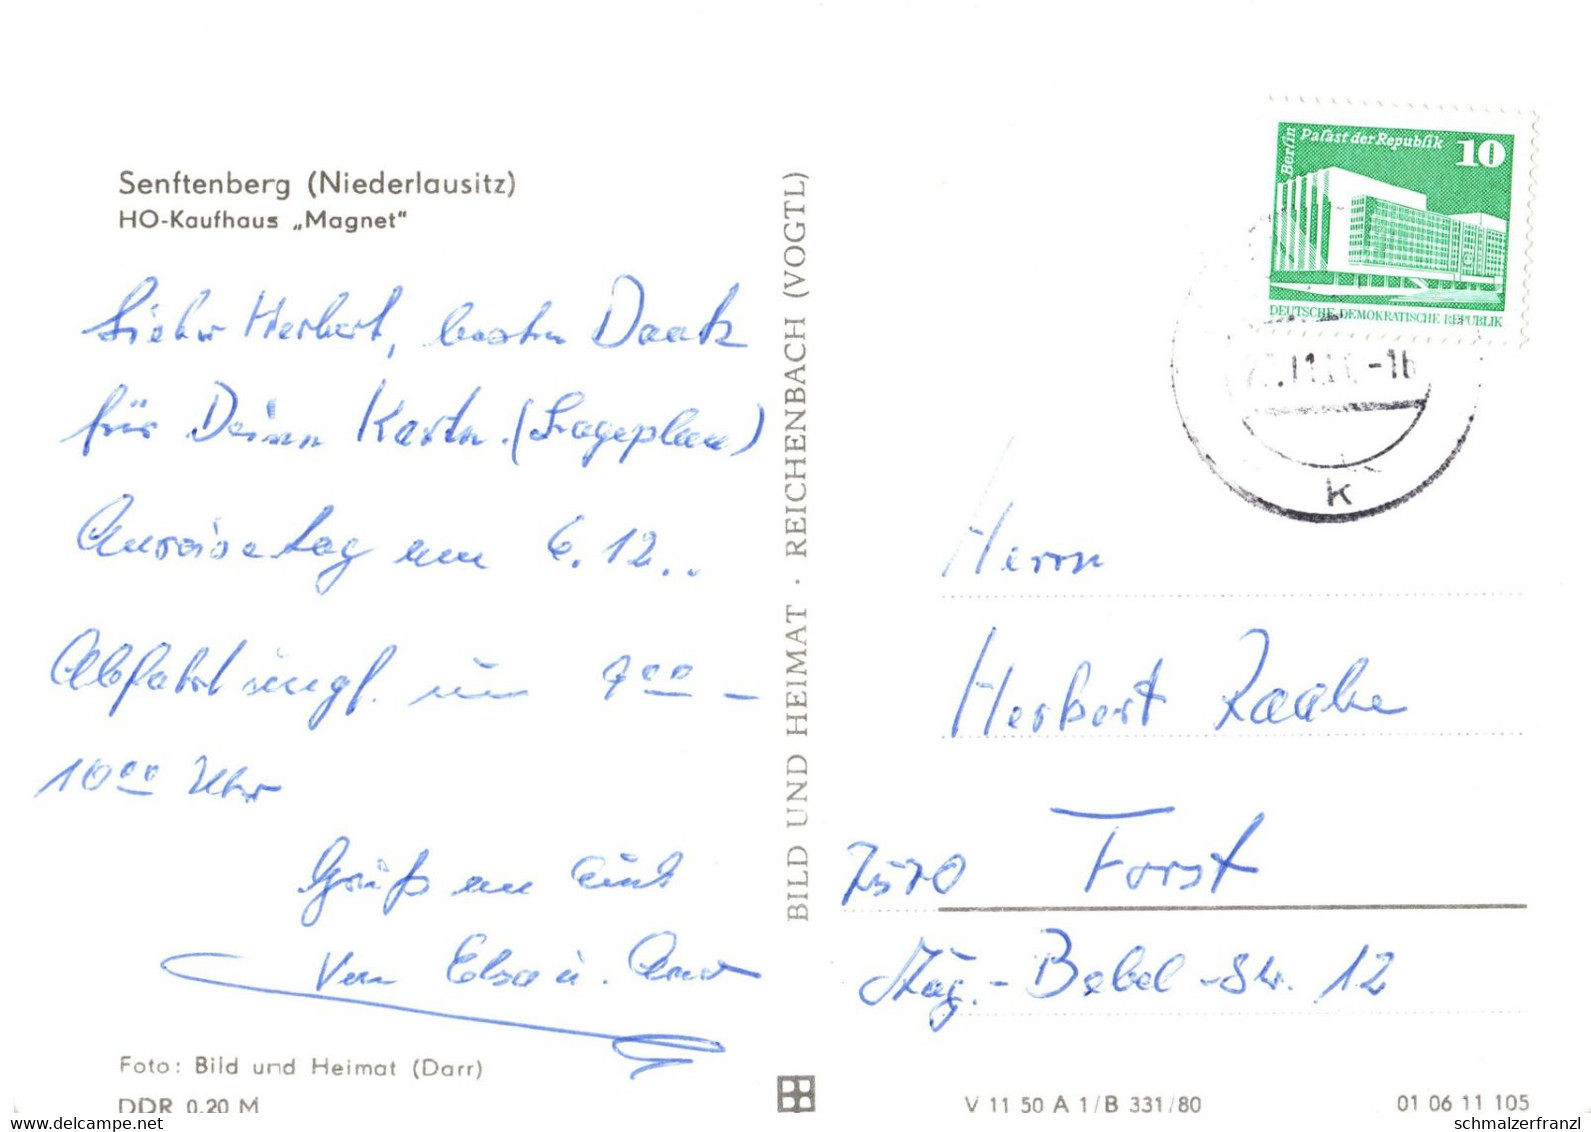 Senftenberg (Niederlausitz)
HO-Kaufhaus „Magnet“
Lieber Herbert, besten Dank
für Deine Karten. (Lageplan)
Anreisetag am 6.12..
Abfahrt ungf. um 9⁰⁰ –
10⁰⁰ Uhr
Gruß an
Von Elsa u.
Foto: Bild und Heimat (Darr)
DDR 0,20 M
BILD UND HEIMAT · REICHENBACH (VOGTL)
Berlin
Palast der Republik 10
DEUTSCHE DEMOKRATISCHE REPUBLIK
k
Herrn
Herbert Raake
7570 Forst
Aug.-Bebel-Str. 12
V 11 50 A 1/B 331/80
01 06 11 105
www.delcampe.net
schmalzerfranzl